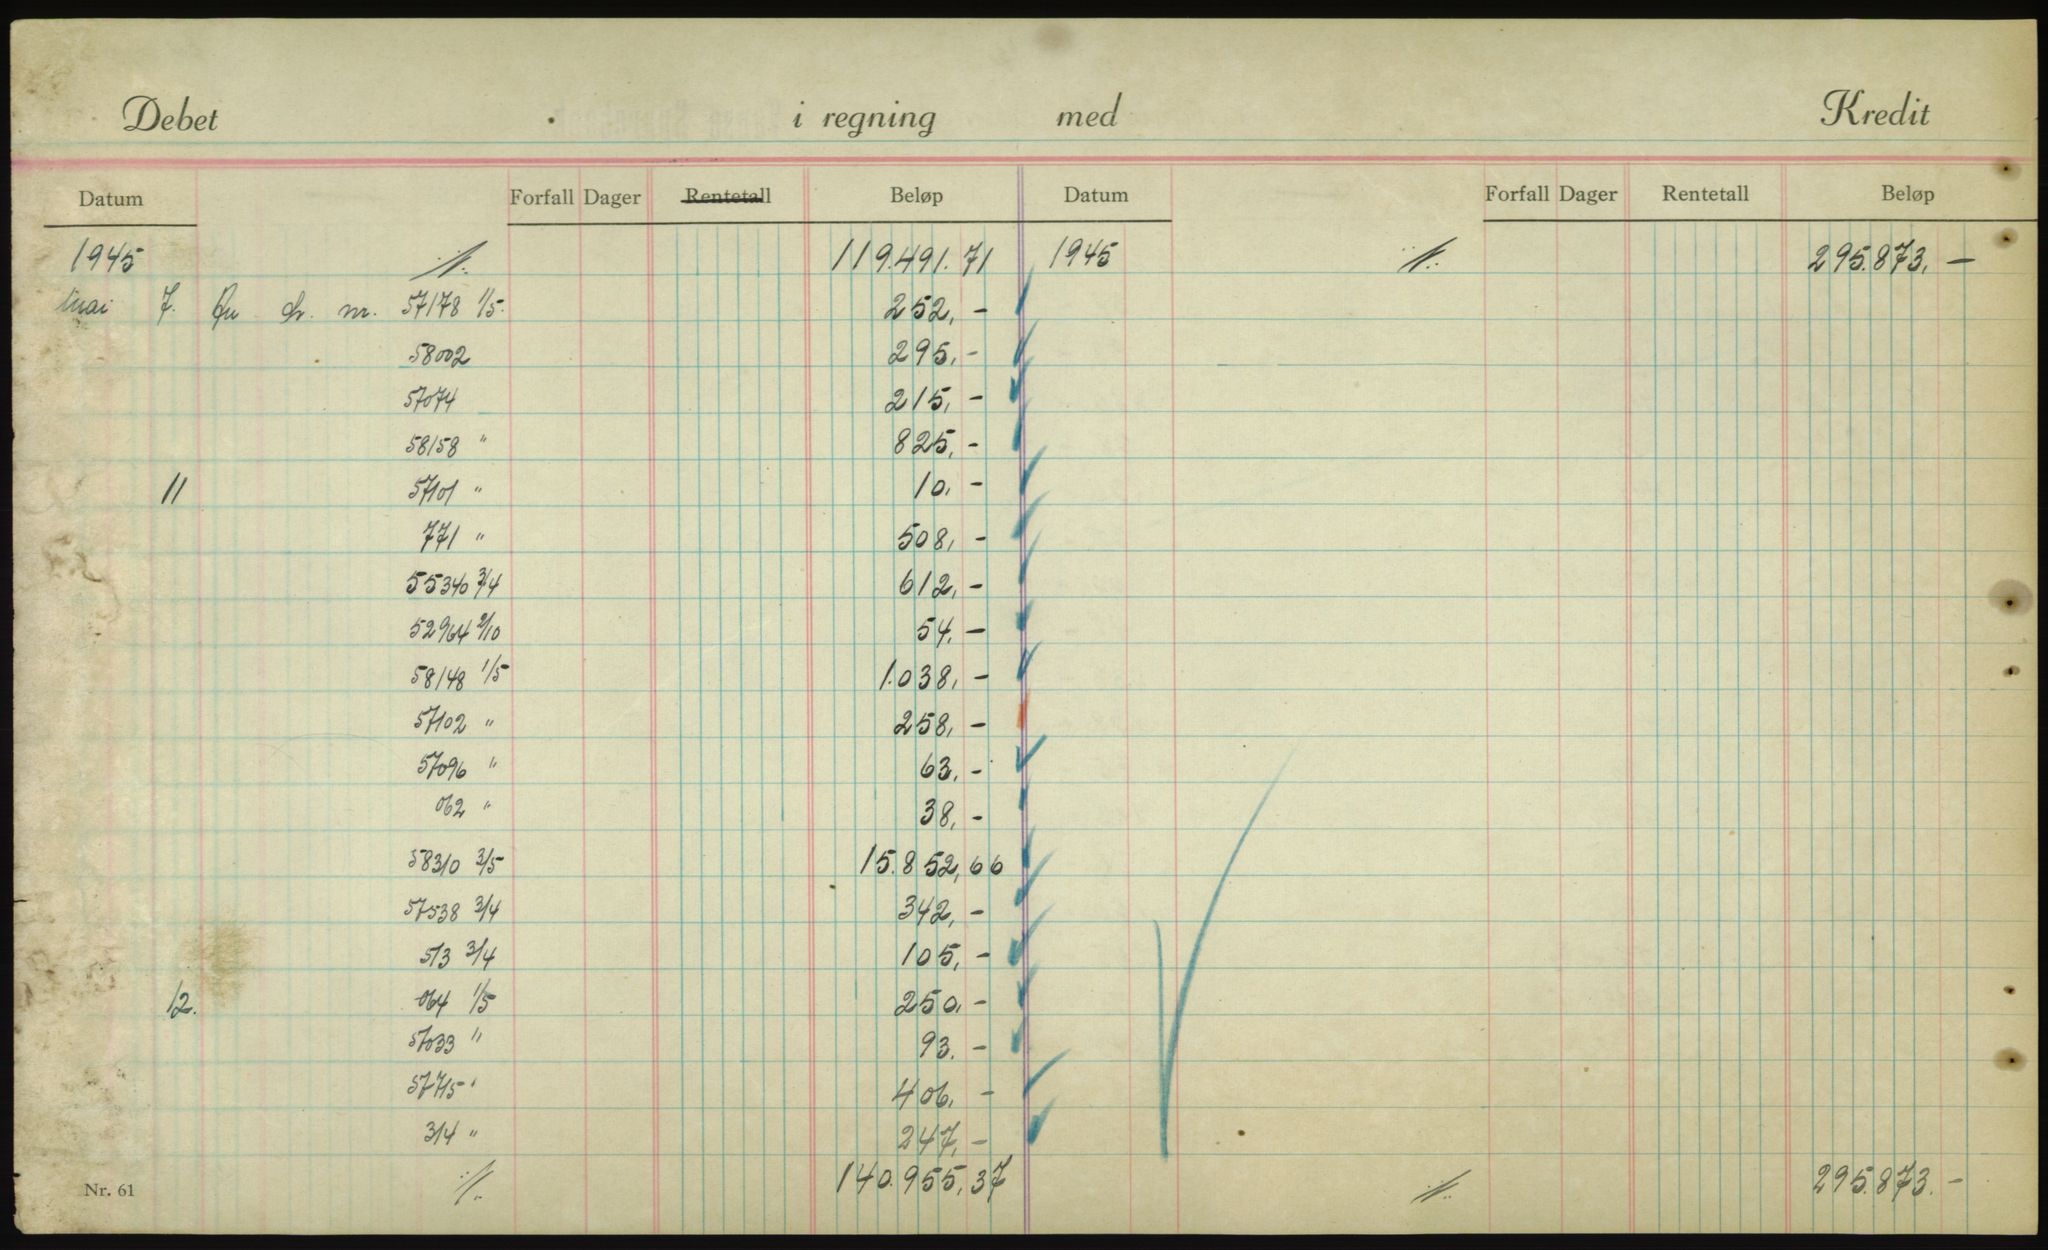 Debet i regning med Kredit
Datum Forfall Dager Rentetall Beløp Datum Forfall Dager Rentetall Beløp
1945 119.491.71 1945 295.873,—
Mai 7. nr. 57178 1/5. 252,-
58002 295,-
57074 215,-
58158 " 825,-
11 57101 " 10,-
771 " 508,-
55340 3/4 612,-
52964 2/10 54,-
58148 1/5 1.038,-
57102 " 258,-
57096 " 63,-
062 " 38,-
58310 3/5 15.852,66
57538 3/4 342,-
513 3/4 105,-
12. 064 1/5 250,-
57033 " 93.-
57715 " 406,-
314 " 247,-
Nr. 61 140.955,37 295.873.-